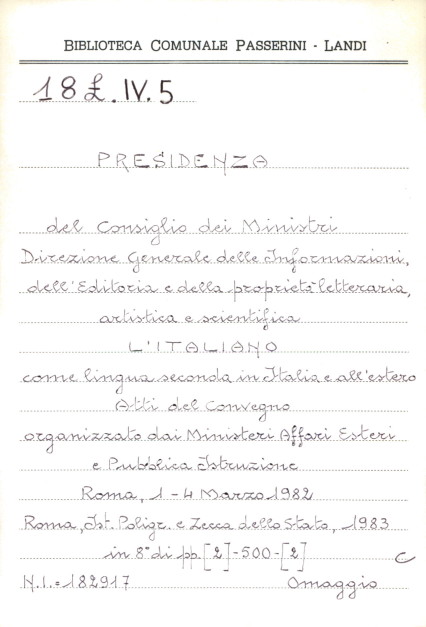 BIBLIOTECA COMUNALE PASSERINI - LANDI
18 £. IV. 5
PRESIDENZA
del Consiglio dei Ministri
Direzione Generale delle Informazioni,
dell'Editoria e della proprietà letteraria,
artistica e scientifica
L'ITALIANO
come lingua seconda in Italia e all'estero
Atti del Convegno
organizzato dai Ministeri Affari Esteri
e Pubblica Istruzione
Roma, 1 - 4 Marzo 1982
Roma, Ist. Poligr. e Zecca dello Stato, 1983
in 8° di pp. [2]-500-[2]
C
N.I.= 182917 Omaggio